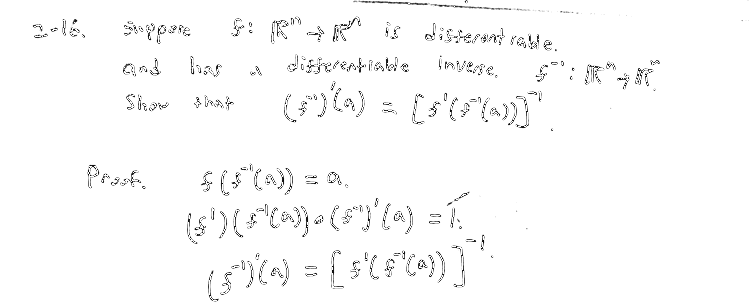 2-16. Suppose f: ℝⁿ → ℝⁿ is differentiable.
and has a differentiable inverse. f⁻¹: ℝⁿ → ℝⁿ.
Show that (f⁻¹)'(a) = [f'(f⁻¹(a))]⁻¹.
Proof. f(f⁻¹(a)) = a.
(f')(f⁻¹(a)) ∘ (f⁻¹)'(a) = 1.
(f⁻¹)'(a) = [f'(f⁻¹(a))]⁻¹.